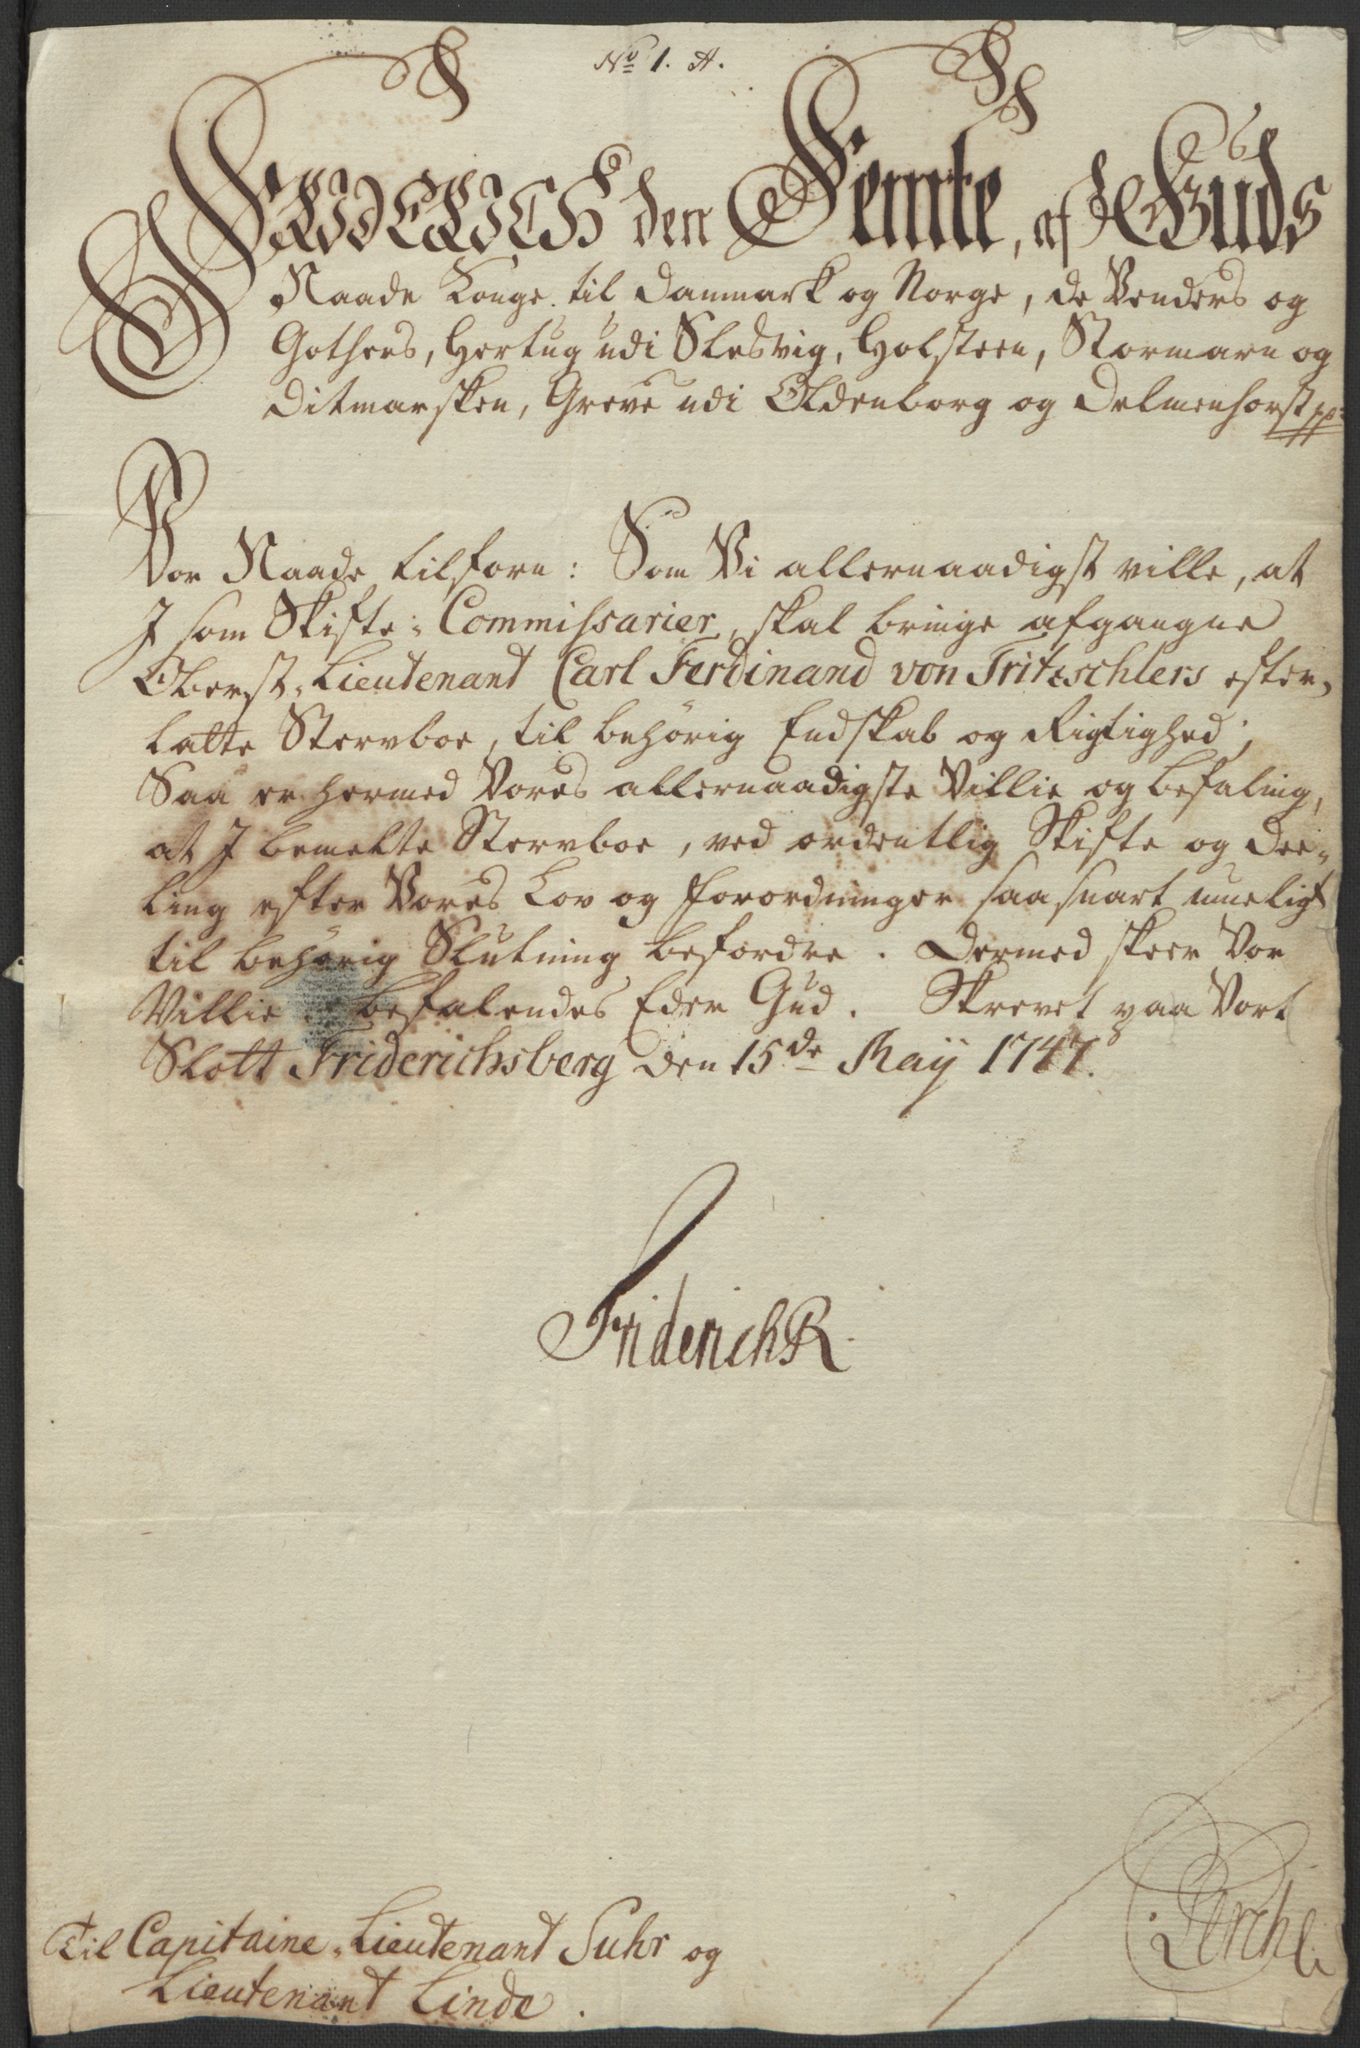 No 1. A.
FRIDERICH den Femte, af Guds
Naade Konge til Danmark og Norge, de Venders og
Gothers, Hertug udi Slesvig, Holsteen, Stormarn og
Ditmarsken, Greve udi Oldenborg og Delmenhorst pp:
Vor Naade tilforn: Som Vi allernaadigst ville, at
I som Skifte-Commissarier, skal bringe afgangne
Oberst-Lieutenant Carl Ferdinand von Tritzschlers efter-
latte Stervboe, til behörig Endskab og Rigtighed;
Saa er hermed Vores allernaadigste Villie og befaling,
at I bemelte Stervboe, ved ordentlig Skifte og dee-
ling efter Vores Lov og forordninger saa snart mueligt
til behörig Slutning befordre. Dermed skeer Vor
Villie. Befalendes Eder Gud. Skrevet paa Vort
Slott Friderichsberg den 15de Maij 1747.
Friderich R
Til Capitaine-Lieutenant Suhr og
Lieutenant Linde.